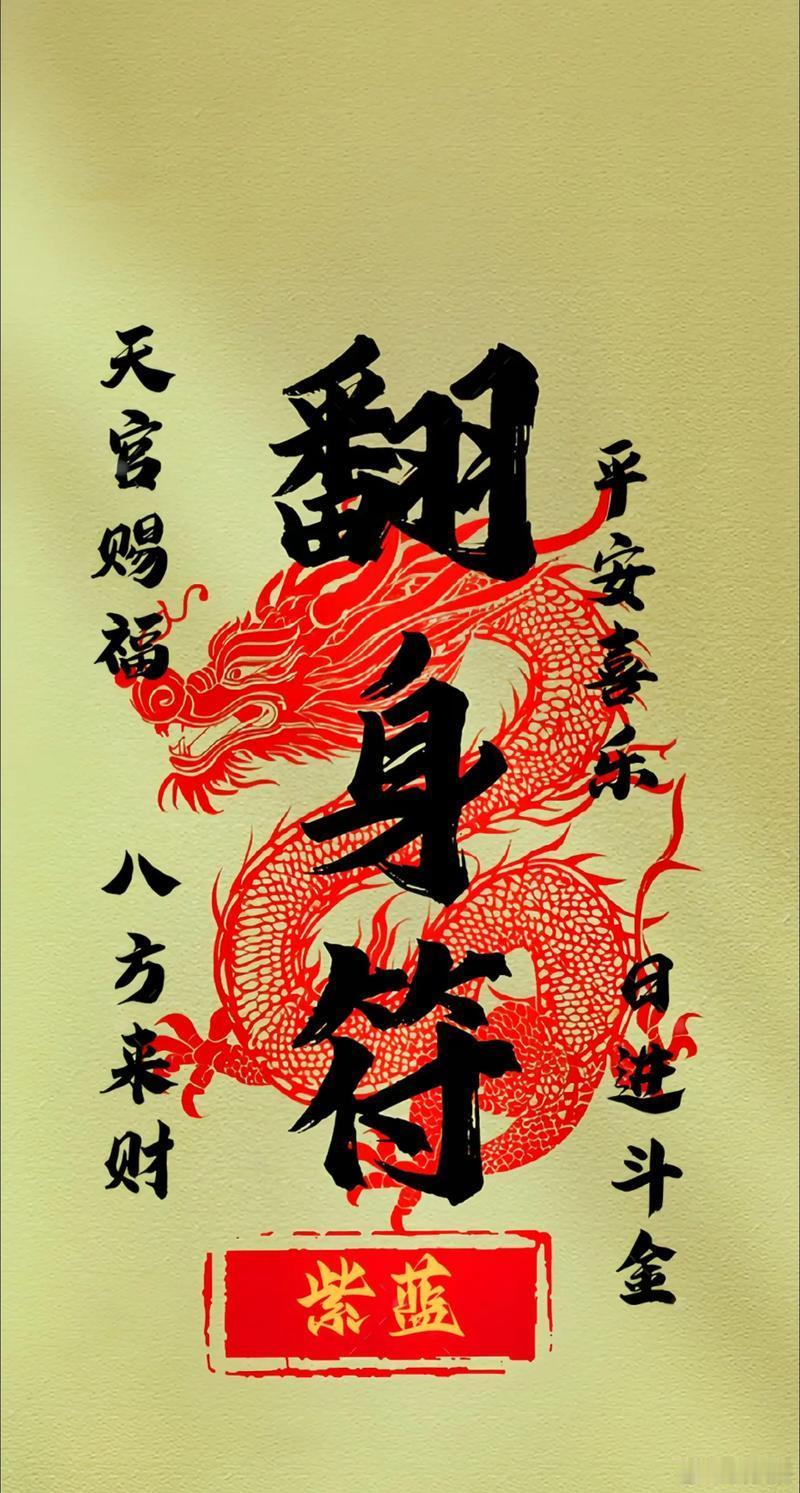 翻身符
天官赐福
八方来财
平安喜乐
日进斗金
紫蓝